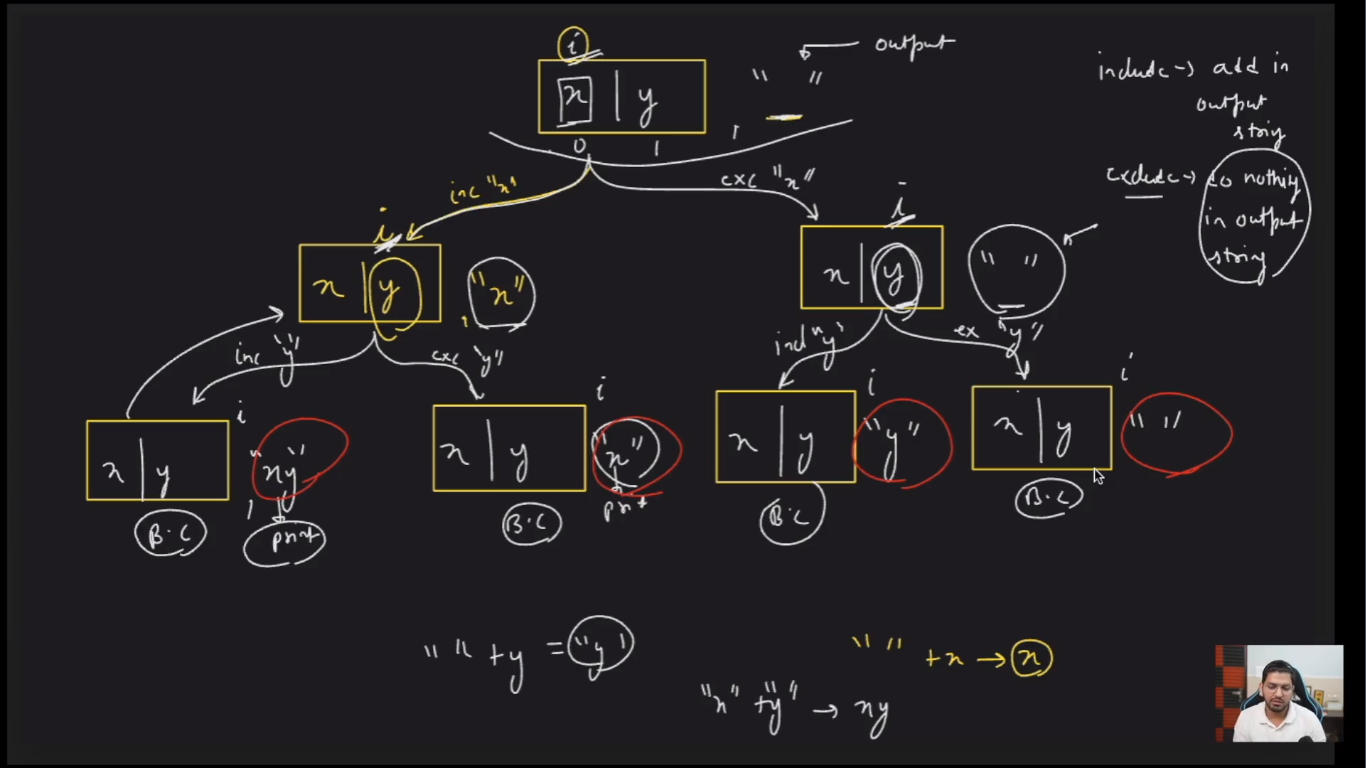 i
output
x | y
" "
0 1 ,
include → add in
output
string
exclude → do nothing
in output
string
inc "x"
exc "x"
i
x | y
, "x"
i
x | y
" "
inc "y"
exc "y"
incl "y"
ex "y"
x | y
i
, "xy"
B.C
print
x | y
i
"x"
B.C
print
x | y
i
"y"
B.C
x | y
i
" "
B.C
" " + y = "y"
" " + x → x
"x" + "y" → xy